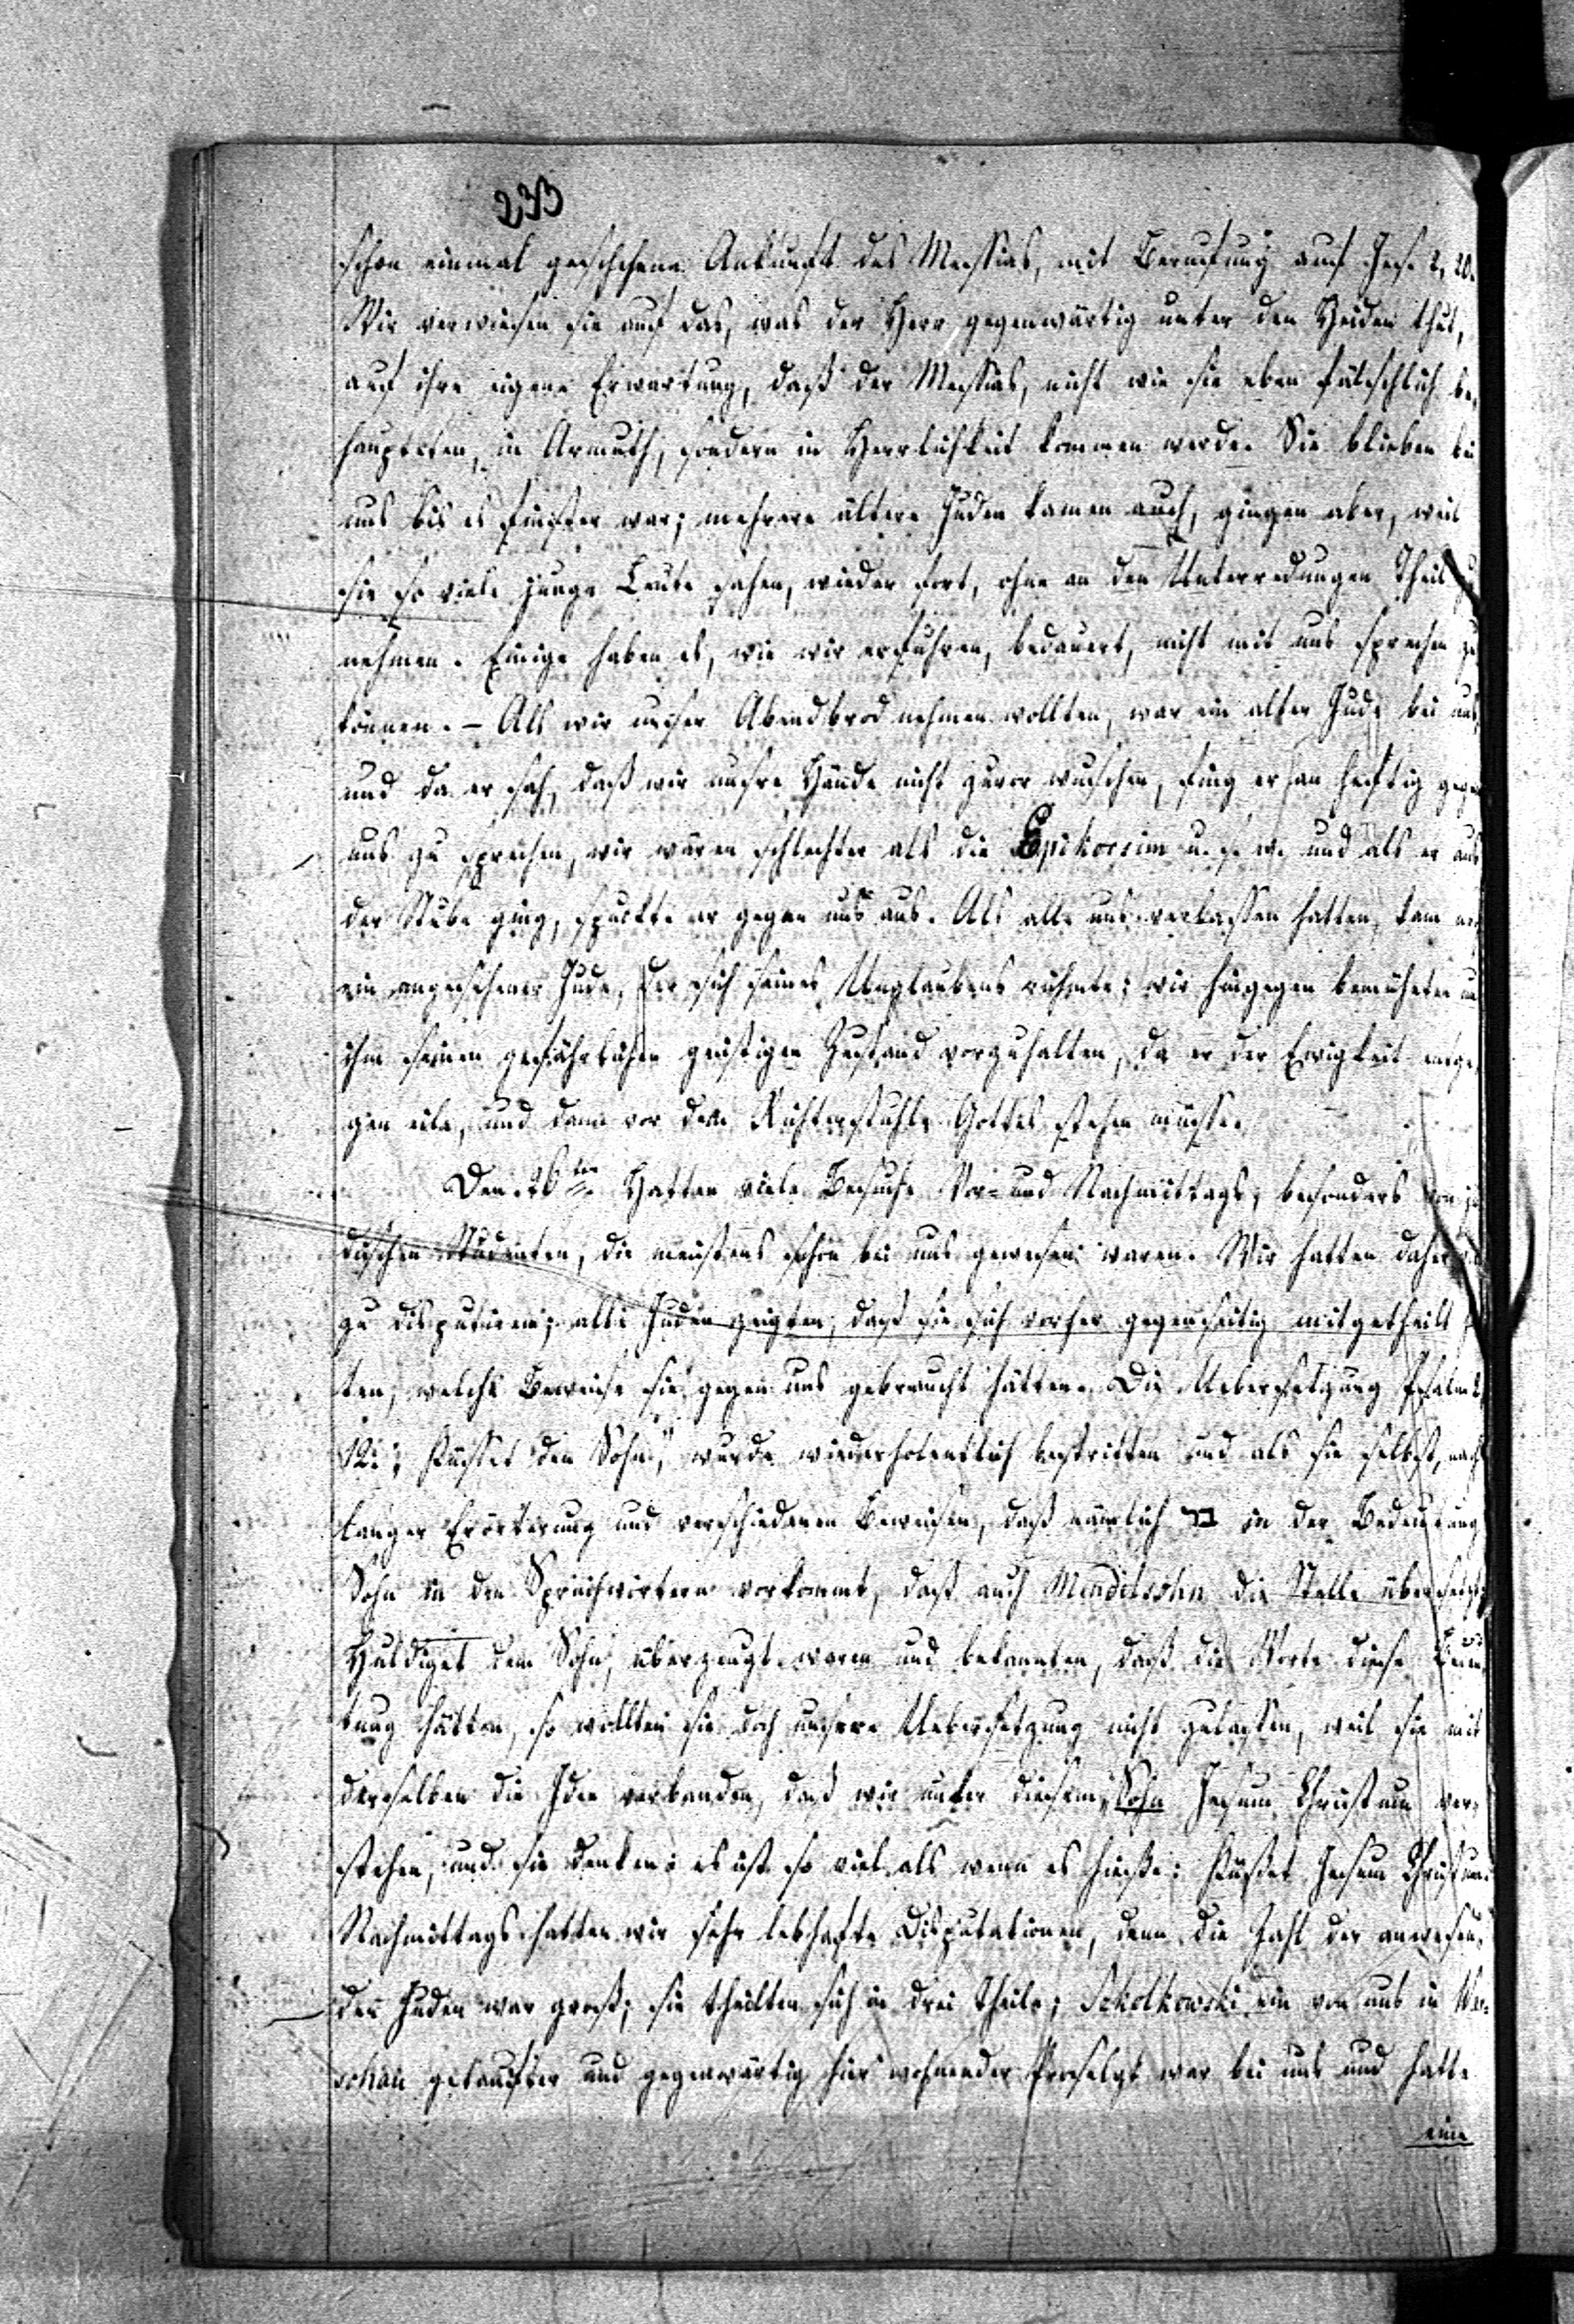 233
schon einmal geschehene Ankunft des Messias, mit Berufung auf Jes. 2, 20.
Wir verwiesen sie auf das, was der Herr gegenwärtig unter den Heiden thut,
auf ihre eigene Erwartung, daß der Messias, nicht wie sie eben fälschlich be,
haupteten, in Armuth, sondern in Herrlichkeit kommen werde. Sie blieben bei
uns bis es finster war; mehrere ältere Juden kamen auch, gingen aber, weil
sie so viele junge Leute sahen, wieder fort, ohne an den Unterredungen Theil zu
nehmen. Einige haben es, wie wir erfuhren, bedauert, nicht mit uns sprechen zu
können. – Als wir unser Abendbrod nehmen wollten, war ein alter Jude bei uns,
und da er sah, daß wir unsre Hände nicht zuvor wuschen, fing er an heftig gegen
uns zu sprechen, wir wären schlechter als die Epikorsim u. s. w. und als er aus
der Stube ging, spuckte er gegen uns aus. Als alle uns verlassen hatten, kam noch
ein angesehener Jude, der sich seines Unglaubens rühmte; wir hingegen bemühten uns
ihm seinen gefährlichen geistigen Zustand vorzuhalten, da er der Ewigkeit entge,
gen eile, und dann vor dem Richterstuhle Gottes stehen müsse.
Den 26ten Hatten viele Besuche Vor- und Nachmittags, besonders von jü
dischen Studenten, die meistens schon bei uns gewesen waren. Wir hatten daher
zu disputiren; alle Juden zeigten, daß sie sich vorher gegenseitig mitgetheilt
ten, welche Beweise sie gegen uns gebraucht hätten. Die Uebersetzung Psalm 2,
12: „Küsset den Sohn," wurde wiederholentlich bestritten und als sie selbst, nach
langer Erörterung und verschiedenen Beweisen, daß nämlich בר in der Bedeutung
Sohn in den Sprüchwörtern vorkommt, daß auch Mendelssohn die Stelle übersetzt:
Huldiget dem Sohn, überzeugt waren und bekannten, daß die Worte diese Bedeu,
tung hätten, so wollten sie doch unsere Uebersetzung nicht zulassen, weil sie mit
derselben die Idee verbanden, daß wir unter diesem Sohn Jesum Christum ver,
stehen, und sie denken: es ist so viel als wenn es hieße: Küsset Jesum Christum.
Nachmittags hatten wir sehr lebhafte Disputationen, denn die Zahl der anwesen,
den Juden war groß; sie theilten sich in drei Theile; Sokolkowski ein von uns in War,
schau getaufter und gegenwärtig hier wohnender Proselyt war bei uns und hatte
eine